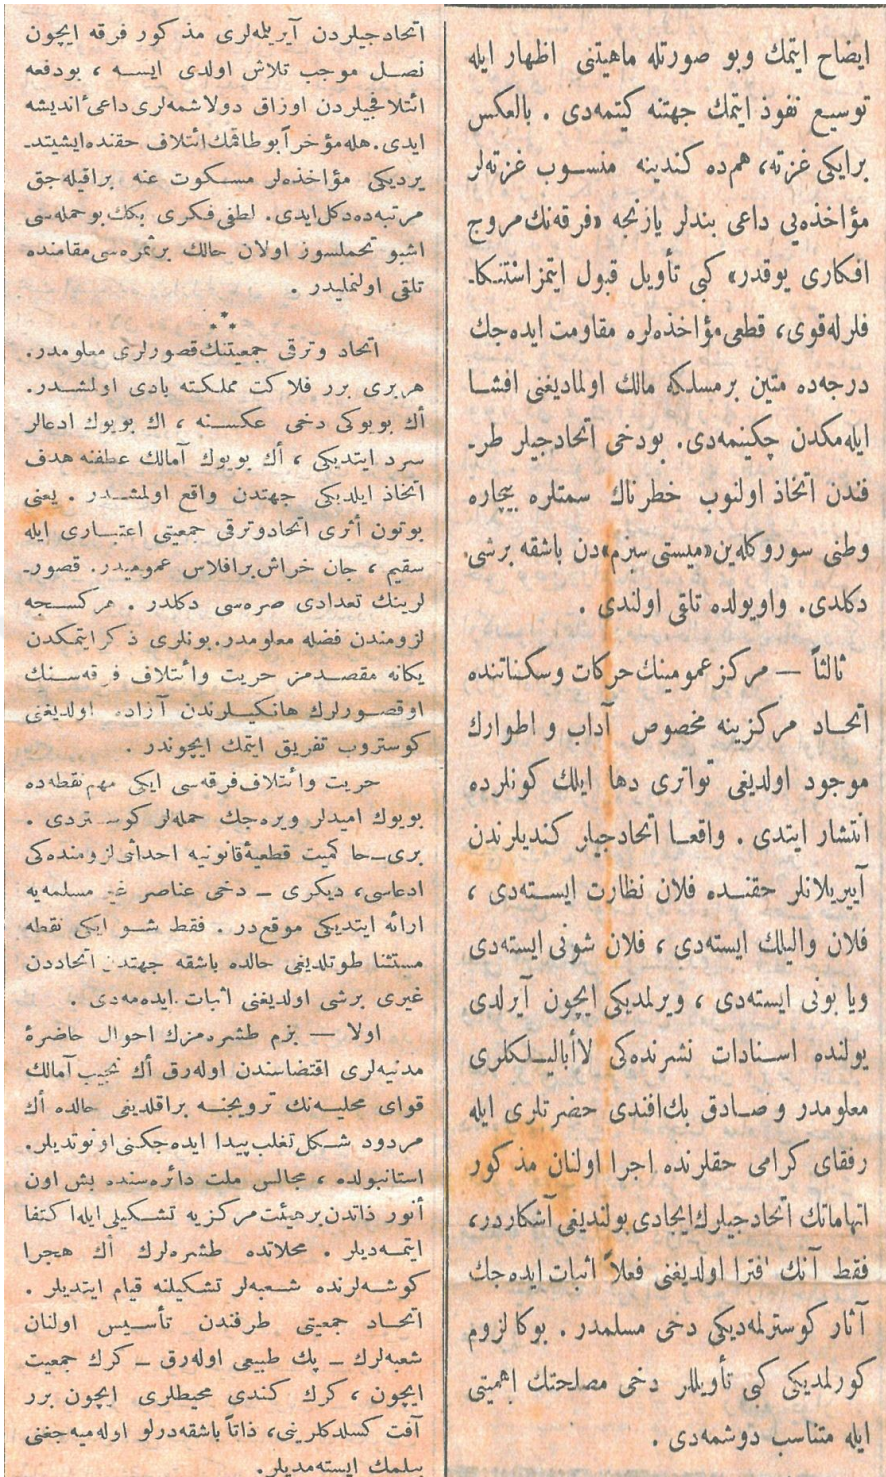 ايضاح ايتمك وبو صورتله ماهيتنى اظهار ايله
توسيع نفوذ ايتمك جهتنه كيتمه‌دى . بالعكس
برايكى غزته، هم‌ده كندينه منسوب غزته‌لر
مؤاخذه‌يى داعى بندلر يازنجه «فرقه‌نك مروج
افكارى يوقدر» كبى تأويل قبول ايتمز استنكا-
فلرله قوى، قطعى مؤاخذه‌لره مقاومت ايده‌جك
درجه‌ده متين برمسلكه مالك اولماديغنى افشا
ايله‌مكدن چكينمه‌دى. بودخى اتحادجيلر طر-
فندن اتخاذ اولنوب خطرناك سمتلره بيچاره
وطنى سوروكله‌ين «ميستى سيزم» دن باشقه برشى
دكلدى. واويولده تلقى اولندى .
ثالثاً — مركز عمومينك حركات وسكناتنده
اتحاد مركزينه مخصوص آداب و اطوارك
موجود اولديغى تواترى دها ايلك كونلرده
انتشار ايتدى . واقعا اتحادجيلر كنديلرندن
آييريلانلر حقنده فلان نظارت ايسته‌دى ،
فلان واليلك ايسته‌دى ، فلان شونى ايسته‌دى
ويا بونى ايسته‌دى ، ويرلمديكى ايچون آيرلدى
يولنده اسنادات نشرنده‌كى لاأباليلكلرى
معلومدر و صادق بك افندى حضرتلرى ايله
رفقاى كرامى حقلرنده اجرا اولنان مذكور
اتهاماتك اتحادجيلرك ايجادى بولنديغى آشكاردر،
فقط آنك افترا اولديغنى فعلاً اثبات ايده‌جك
آثار كوسترلمه‌ديكى دخى مسلمدر . بوكا لزوم
كورلمديكى كبى تأويللر دخى مصلحتك اهميتى
ايله متناسب دوشمه‌دى .
اتحادجيلردن آيريلمه‌لرى مذكور فرقه ايچون
نصل موجب تلاش اولدى ايسه ، بودفعه
ائتلافجيلردن اوزاق دولاشمه‌لرى داعئ انديشه
ايدى. هله مؤخراً بوطاقمك ائتلاف حقنده ايشيتد-
يرديكى مؤاخذه‌لر مسكوت عنه براقيله‌جق
مرتبه‌ده دكل ايدى. لطفى فكرى بكك بو حمله‌سى
اشبو تحملسوز اولان حالك برثمره‌سى مقامنده
تلقى اولنمليدر .
⁂
اتحاد وترقى جمعيتنك قصورلرى معلومدر.
هربرى برر فلاكت مملكته بادى اولمشدر.
أك بويوكى دخى عكسنه ، اك بويوك ادعالر
سرد ايتديكى ، أك بويوك آمالك عطفنه هدف
اتخاذ ايلديكى جهتدن واقع اولمشدر . يعنى
بوتون أثرى اتحادوترقى جمعيتى اعتبارى ايله
سقيم ، جان خراش برافلاس عموميدر. قصور-
لرينك تعدادى صره‌سى دكلدر . هركسجه
لزومندن فضله معلومدر. بونلرى ذكر ايتمكدن
يكانه مقصدمز حريت وائتلاف فرقه‌سنك
اوقصورلرك هانكيلرندن آزاده اولديغنى
كوستروب تفريق ايتمك ايچوندر .
حريت وائتلاف فرقه‌سى ايكى مهم نقطه‌ده
بويوك اميدلر ويره‌جك حمله‌لر كوستردى .
برى — حاكميت قطعيۀ قانونيه احداثى لزومنده‌كى
ادعاسى، ديكرى — دخى عناصر غير مسلمه‌يه
ارائه ايتديكى موقع‌در . فقط شو ايكى نقطه
مستثنا طوتلديغى حالده باشقه جهتدن اتحاددن
غيرى برشى اولديغنى اثبات ايده‌مه‌دى .
اولا — بزم طشره‌مزك احوال حاضرۀ
مدنيه‌لرى اقتضاسندن اوله‌رق أك نجيب آمالك
قواى محليه‌نك ترويجنه براقلديغى حالده أك
مردود شكل تغلب پيدا ايده‌جكنى اونوتديلر.
استانبولده ، مجالس ملت دائره‌سنده بش اون
أنور ذاتدن برهيئت مركزيه تشكيلى ايله اكتفا
ايتمه‌ديلر . محلاتده طشره‌لرك أك هجرا
كوشه‌لرنده شعبه‌لر تشكيلنه قيام ايتديلر .
اتحاد جمعيتى طرفندن تأسيس اولنان
شعبه‌لرك — پك طبيعى اوله‌رق — كرك جمعيت
ايچون ، كرك كندى محيطلرى ايچون برر
آفت كسلدكلرينى، ذاتاً باشقه‌درلو اوله‌ميه‌جغنى
بيلمك ايسته‌مديلر.